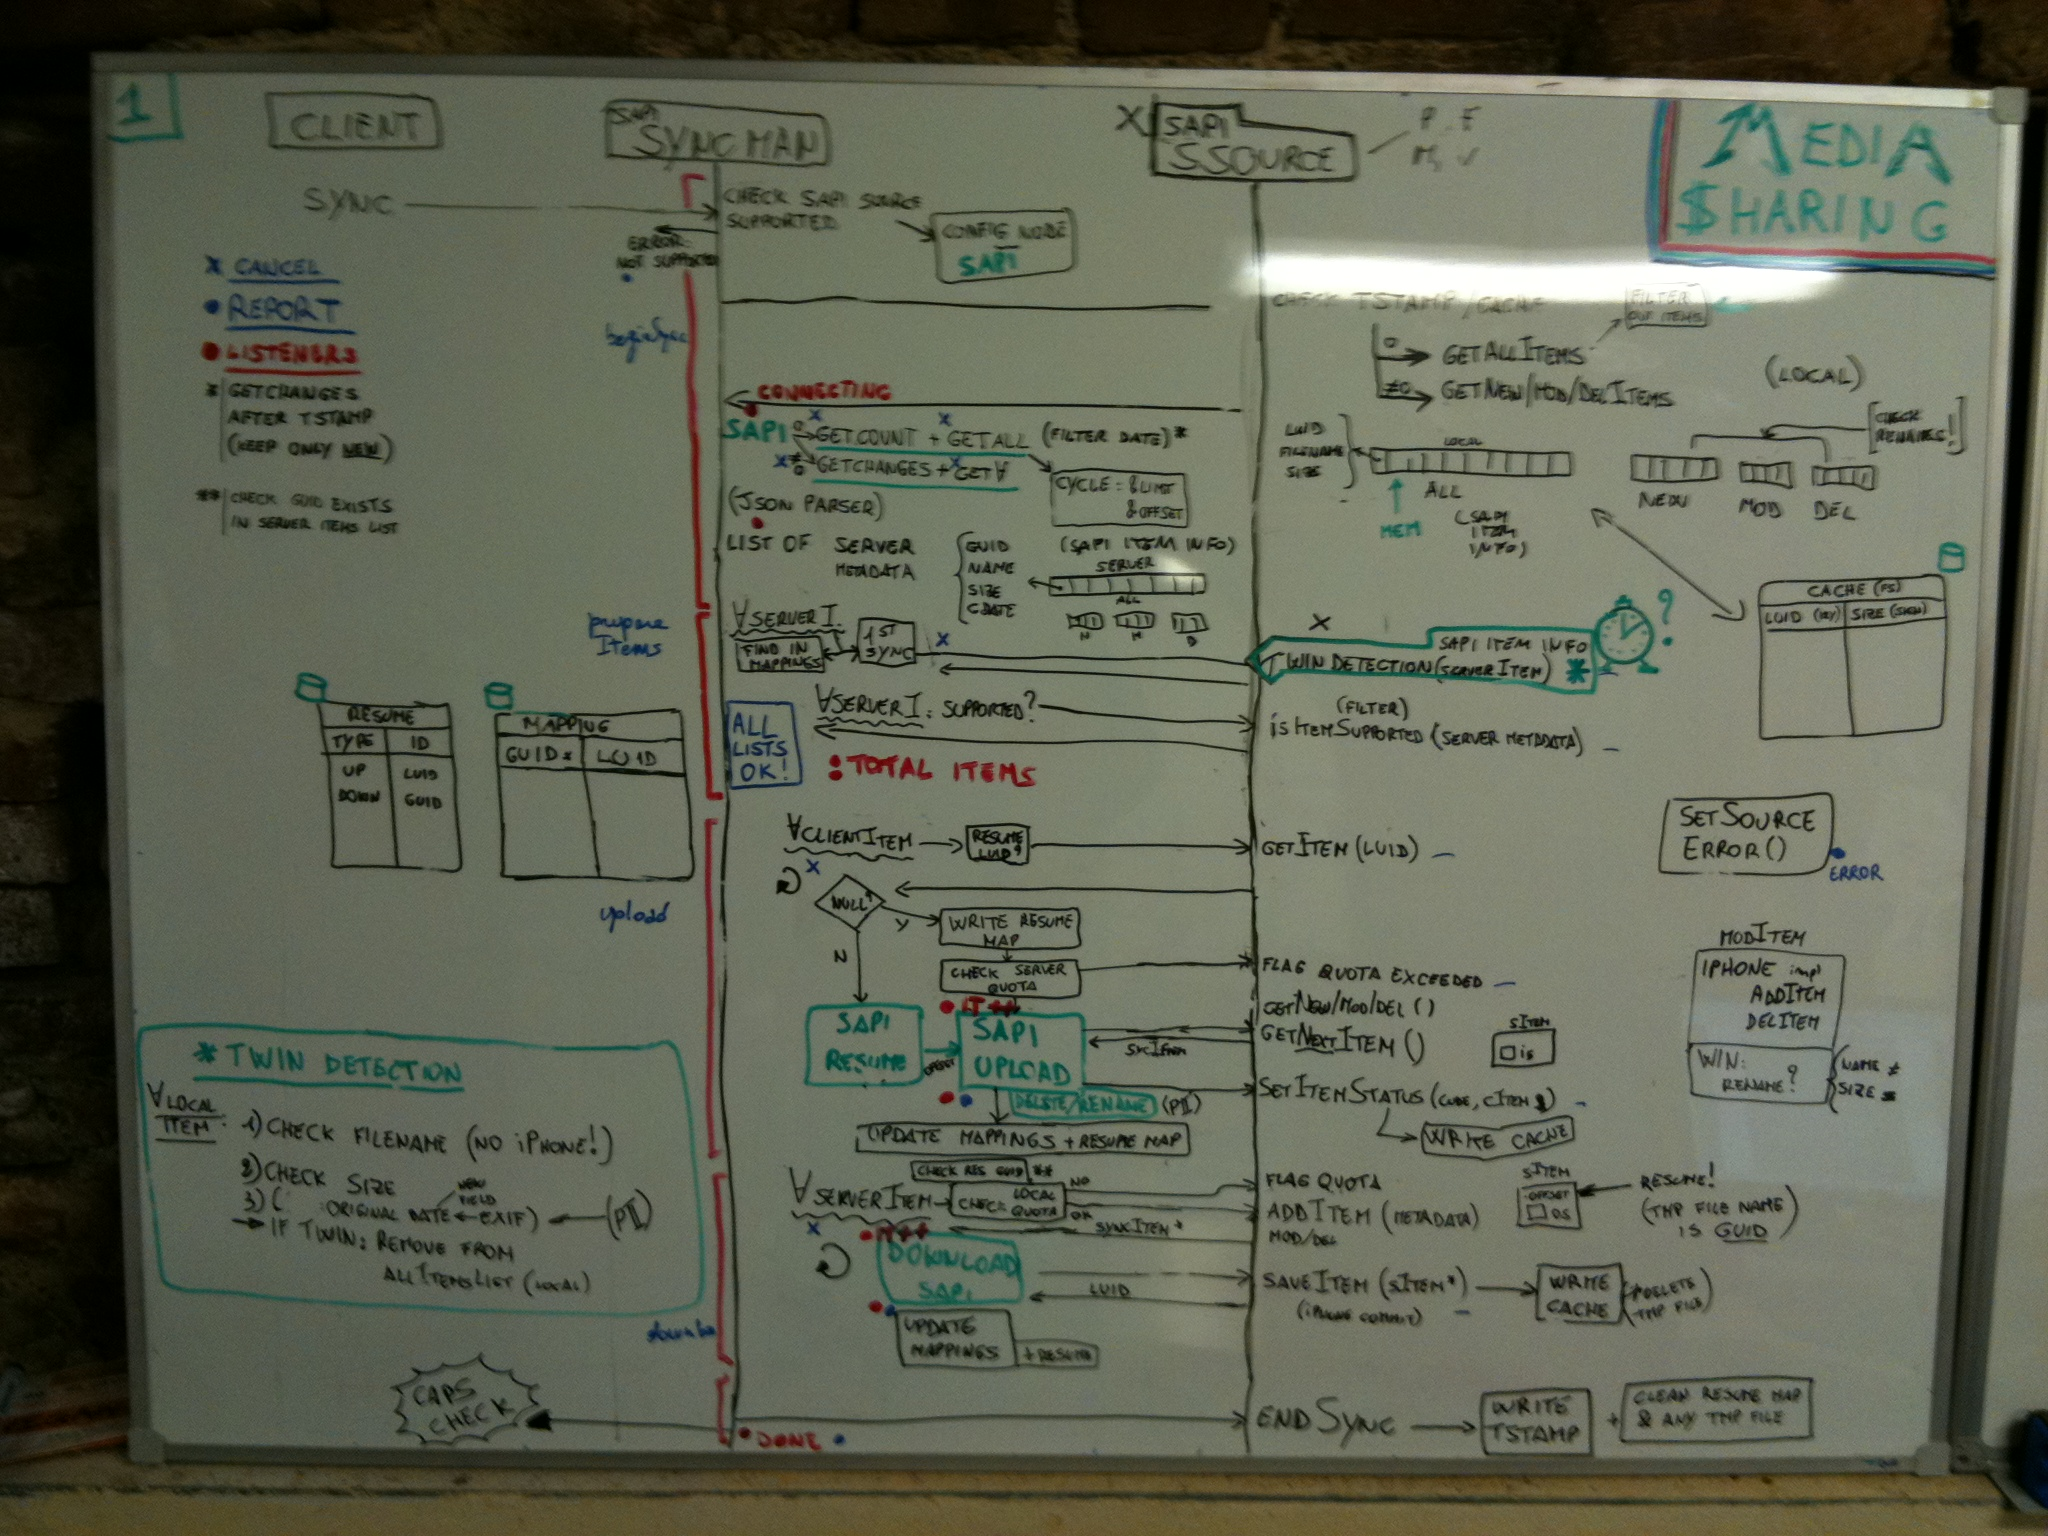 1
CLIENT
SAPI
SYNC MAN
X
SAPI
SSOURCE
MEDIA
$HARING
SYNC
CHECK SAPI SOURCE
SUPPORTED
CONFIG NODE
SAPI
ERROR
NOT SUPPORTED
X CANCEL
REPORT
LISTENERS
* GETCHANGES
AFTER TSTAMP
(KEEP ONLY NEW)
** CHECK GUID EXISTS
IN SERVER ITEMS LIST
beginSync
CHECK TSTAMP/CACHE
FILTER
OUT ITEMS
0 GETALLITEMS
≠0 GETNEW/MOD/DELITEMS
(LOCAL)
CONNECTING
SAPI
0 GETCOUNT + GETALL (FILTER DATE)*
≠0 GETCHANGES + GET∀
CYCLE: &LIMIT
&OFFSET
(JSON PARSER)
LIST OF SERVER
METADATA
GUID
NAME
SIZE
CDATE
(SAPI ITEM INFO)
SERVER
ALL
N M D
LUID
FILENAME
SIZE
LOCAL
ALL
MEM
(SAPI
ITEM
INFO)
[CHECK
RENAMES!]
NEW
MOD
DEL
CACHE (FS)
LUID (KEY) SIZE (SIGN)
prepare
Items
∀SERVERI.
FIND IN
MAPPINGS
1ST
SYNC
X
X
SAPI ITEM INFO
TWIN DETECTION (SERVERITEM) *
?
∀SERVERI: SUPPORTED?
(FILTER)
isITEMSUPPORTED (SERVER METADATA)
ALL
LISTS
OK!
TOTAL ITEMS
RESUME
TYPE ID
UP LUID
DOWN GUID
MAPPING
GUID LUID
upload
∀CLIENTITEM
RESUME
LUID?
GETITEM (LUID)
X
NULL?
Y
N
WRITE RESUME
MAP
CHECK SERVER
QUOTA
FLAG QUOTA EXCEEDED
GETNEW/MOD/DEL ()
GETNEXTITEM ()
SITEM
is
SETSOURCE
ERROR()
ERROR
MODITEM
IPHONE impl
ADDITEM
DELITEM
WIN:
RENAME?
NAME ≠
SIZE =
SAPI
RESUME
OFFSET
IT ++
SAPI
UPLOAD
DELETE/RENAME (PII)
SETITEMSTATUS
WRITE CACHE
UPDATE MAPPINGS + RESUME MAP
* TWIN DETECTION
∀LOCAL
ITEM:
1) CHECK FILENAME (NO iPHONE!)
2) CHECK SIZE
NEW
FIELD
3) ( ORIGINAL DATE ← EXIF) ← (PII)
→ IF TWIN: REMOVE FROM
ALLITEMSLIST (LOCAL)
CHECK RES GUID **
∀SERVERITEM
CHECK LOCAL
QUOTA
NO
OK
FLAG QUOTA
ADDITEM (METADATA)
MOD/DEL
SYNCITEM*
SITEM
OFFSET
OS
RESUME!
(TMP FILE NAME
IS GUID)
X
DOWNLOAD
SAPI
LUID
SAVEITEM (SITEM*)
(iPHONE COMMIT)
WRITE
CACHE
(+DELETE
TMP FILE)
UPDATE
MAPPINGS
+ RESUME
CAPS
CHECK
DONE
ENDSYNC
WRITE
TSTAMP
+
CLEAN RESUME MAP
& ANY TMP FILE